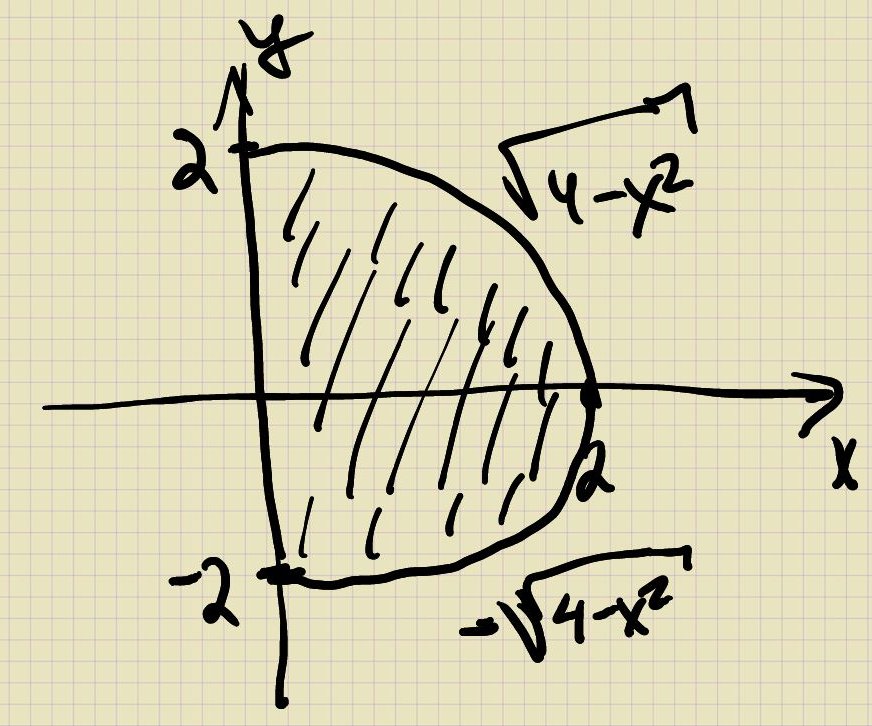 y
2
√4-x²
x
2
-2
-√4-x²